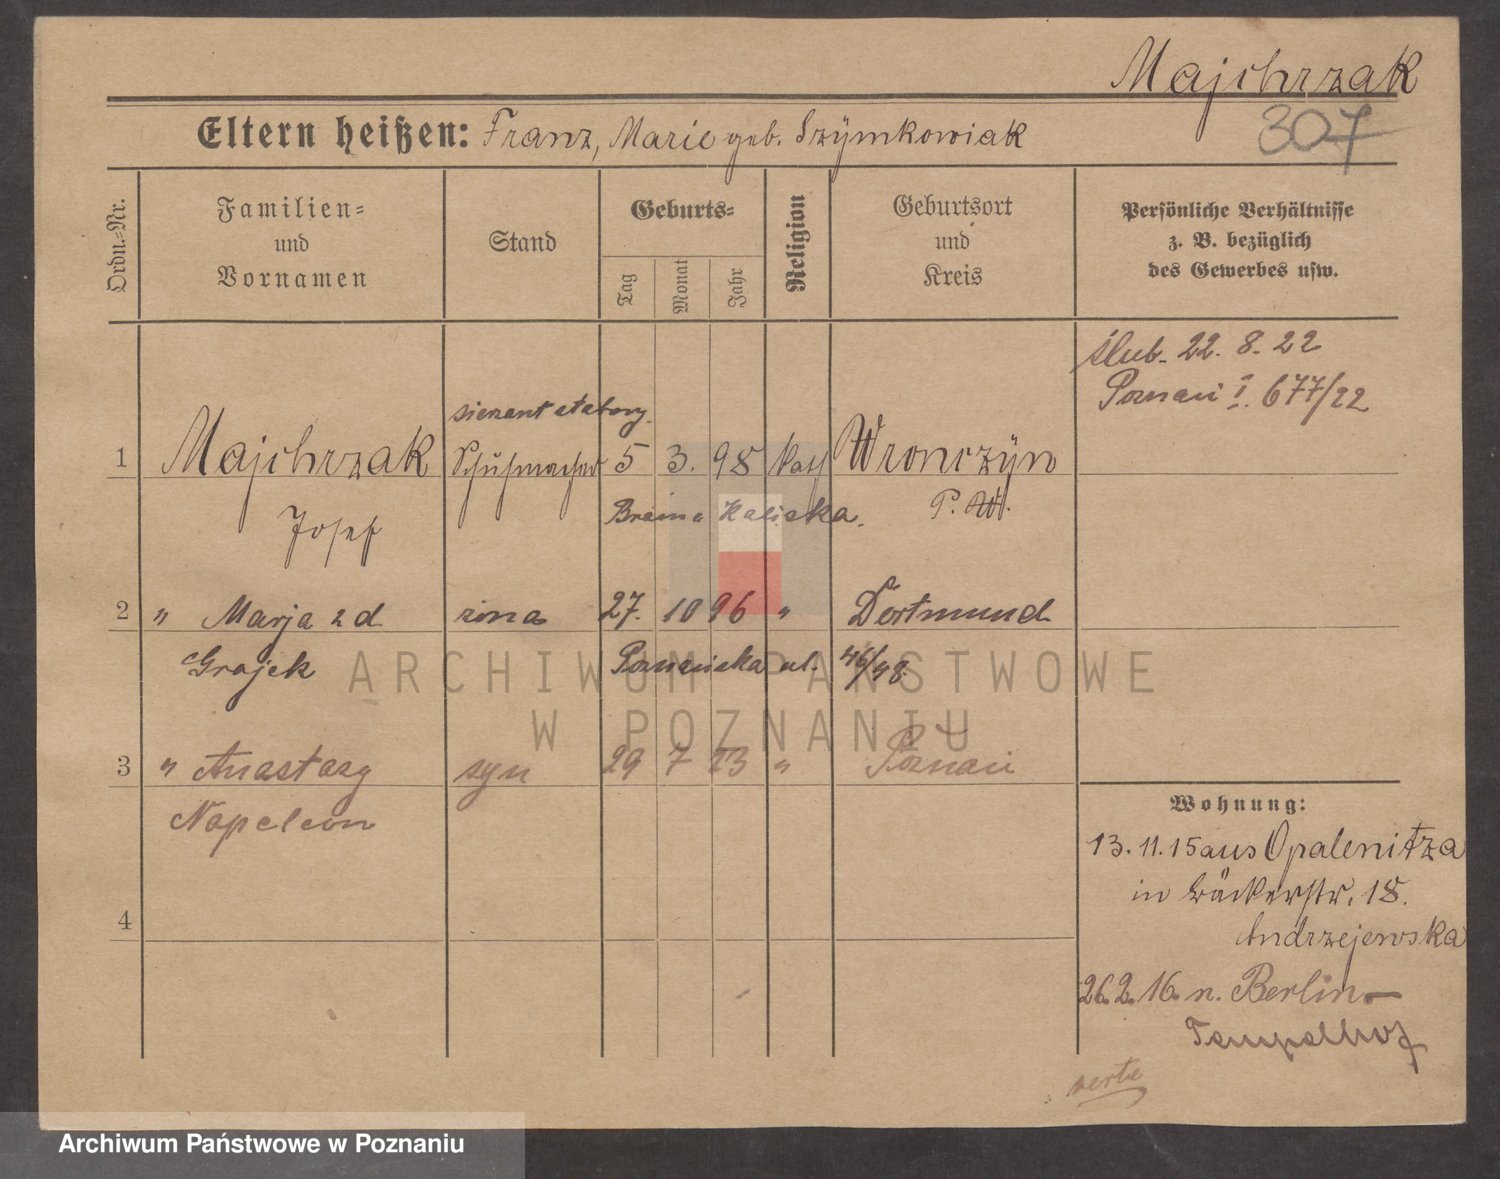 Majchrzak
307
Eltern heißen: Franz, Marie geb. Szÿmkowiak
Ordn.-Nr.
Familien-
und
Vornamen
Stand
Geburts-
Tag
Monat
Jahr
Religion
Geburtsort
und
Kreis
Persönliche Verhältnisse
z. B. bezüglich
des Gewerbes usw.
ślub. 22. 8. 22
Poznań I. 677/22
1 Majchrzak Schuhmacher 5 3. 98 kath Wronczÿn
Josef Brama Kaliska. P. W.
2 " Marja z d żona 27. 10 96 " Dortmund
Grajek Poznańska ul. 46/48.
3 " Anastazy syn 29 7 23 " Poznań
Napoleon
4
Wohnung:
13. 11. 15 aus Opalenitza
in Bäckerstr. 18.
Andrzejewska
26. 2. 16. n. Berlin-
Tempelhof
verte
ARCHIWUM PAŃSTWOWE
W POZNANIU
Archiwum Państwowe w Poznaniu